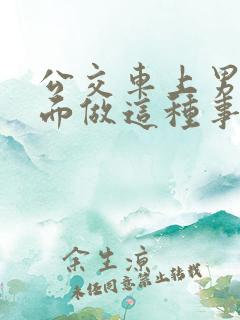 公交車上男
而做這種事
余生涼
未经同意禁止转载